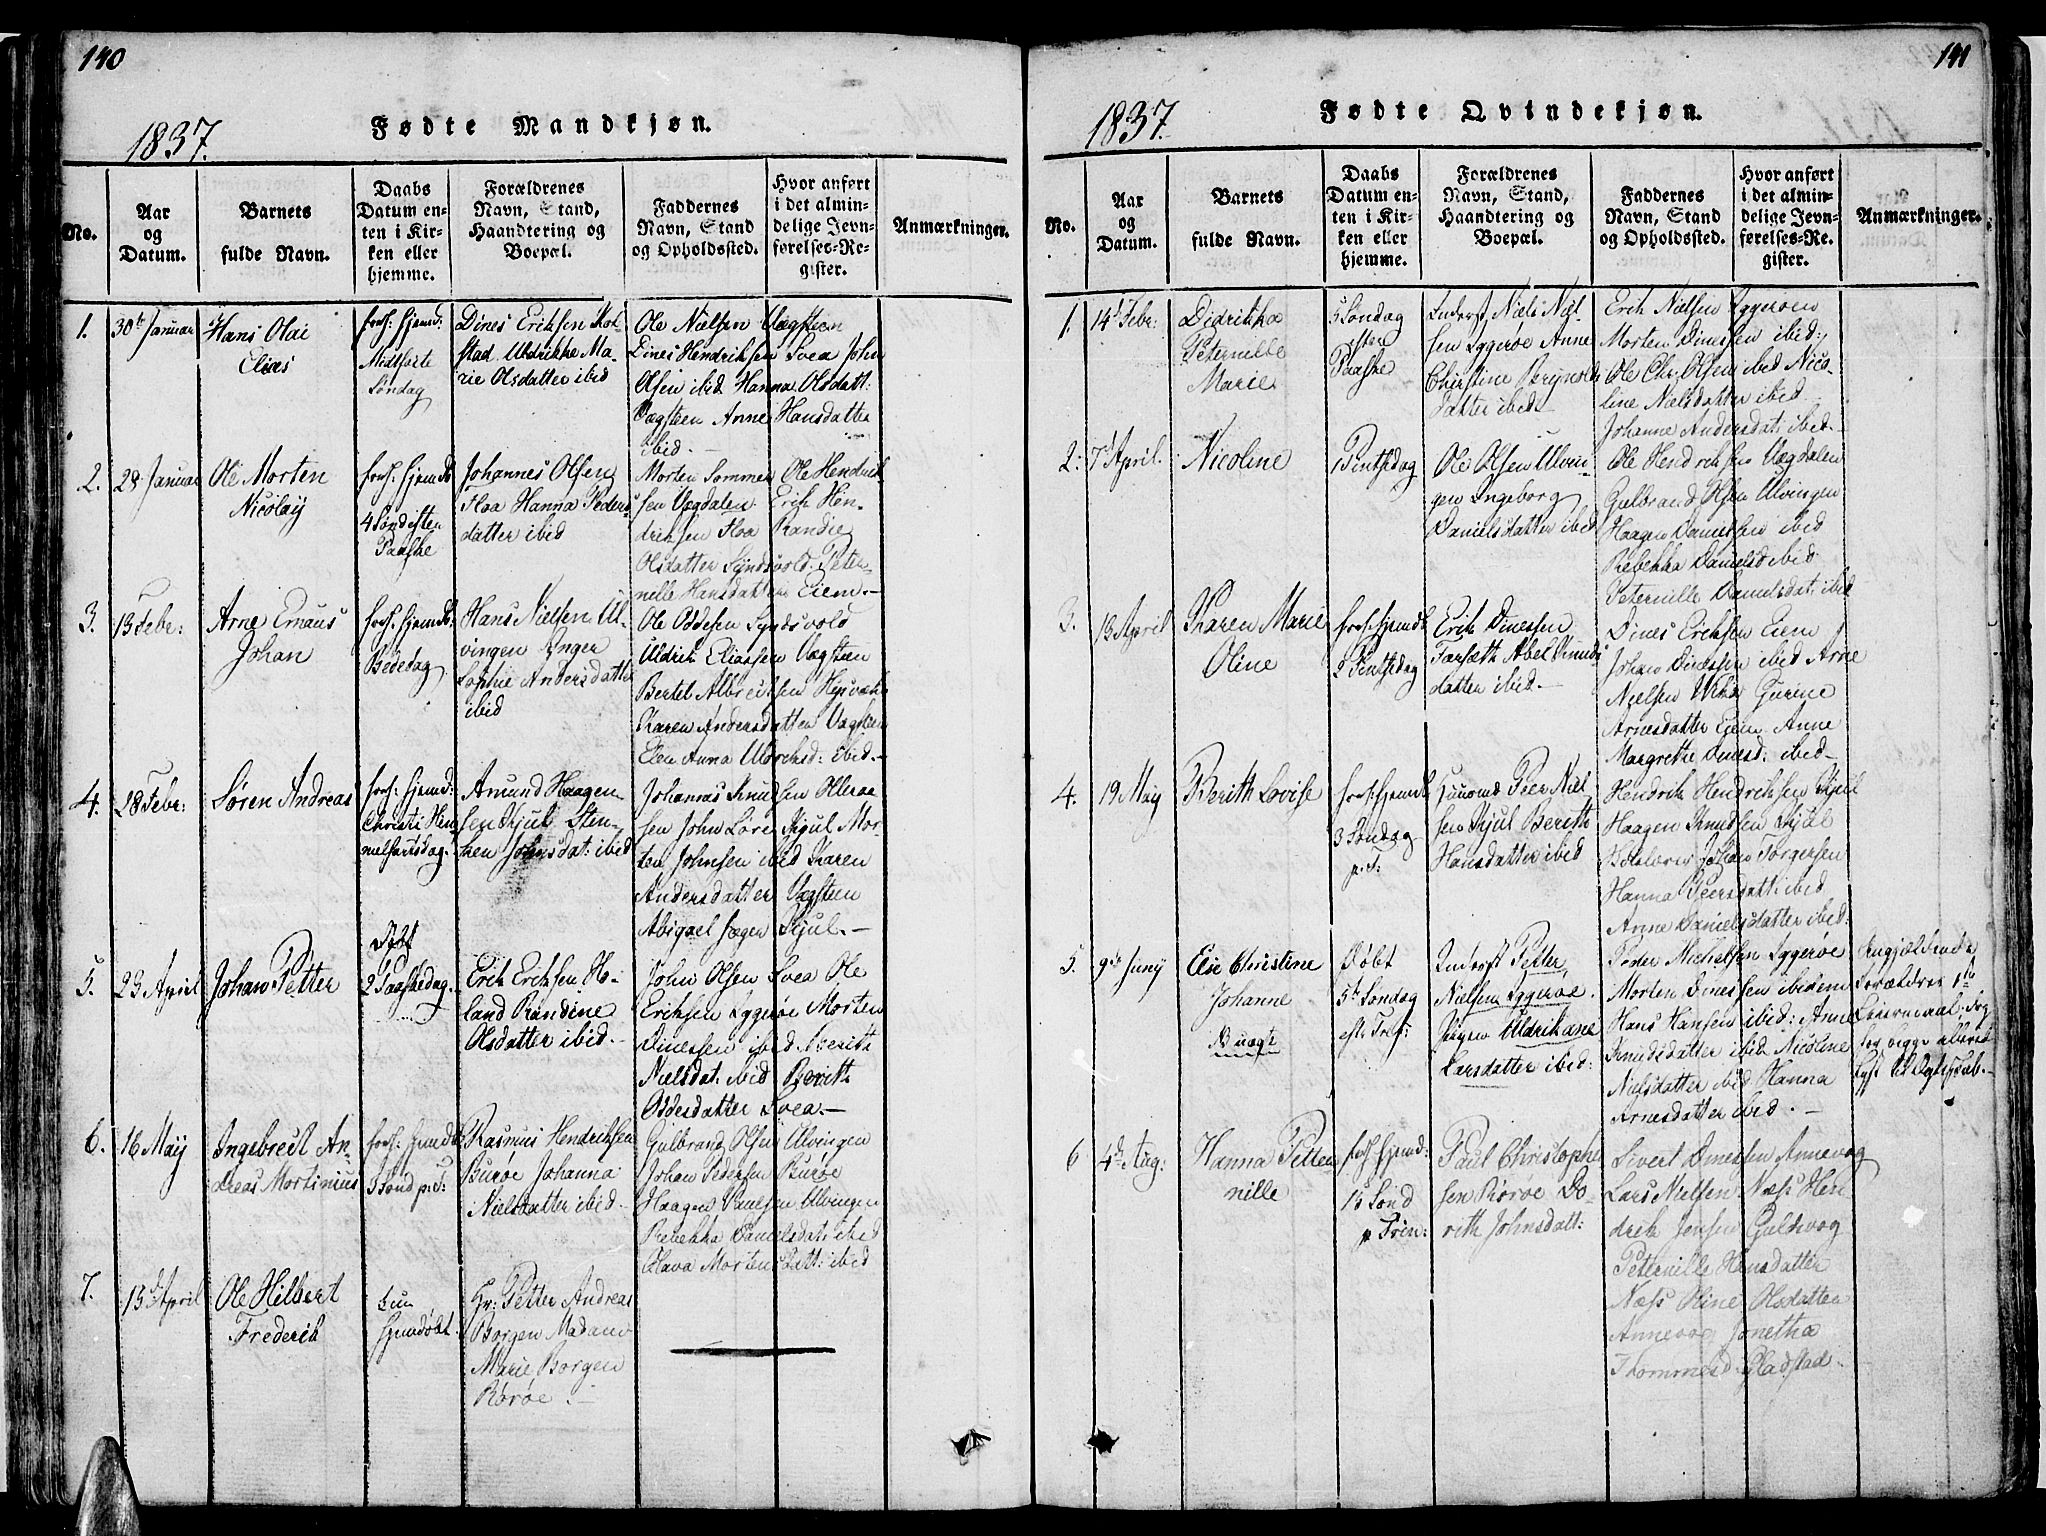 140
1837.
Fødte Mandkjøn.
No.
Aar
og
Datum.
Barnets
fulde Navn.
Daabs
Datum en-
ten i Kir-
ken eller
hjemme.
Forældrenes
Navn, Stand,
Haandtering og
Boepæl.
Faddernes
Navn, Stand
og Opholdssted.
Hvor anført
i det almin-
delige Jevn-
førelses-Re-
gister.
Anmærkninger.
1.
30te Januar
Hans Olai
Elias
Søndag
Dines Eriksen
stad Uldrikke Ma-
rie Olsdatter ibid
Ole Nielsen Vægsteen
Dines Hendriksen Svea John
Olsen ibid Hanna Olsdatt:
Vægsteen Anne Hansdatter
ibid.
2.
28 Januar
Ole Morten
Nicolay
fors: hjemdb
4 Sønd: eften
Paaske
Johannes Olsen
Floa Hanna Peders
datter ibid
Morten Sommer Ole Hendrik
sen Vægdalen Erik Hen-
driksen Floa Randie
Olsdatter Syndsvold Peter-
nelle Hansdatter Eiem.
3.
13 Febr:
Arne Emaus
Johan
fors: hjemdb:
Bededag
Hans Nielsen Ul-
vingen Inger
Sophie Andersdatter
ibid
Ole Oddesen Syndsvold
Uldrik Eliassen Vægsteen
Bertel Albreitsen
Karen Andersdatter Vægsteen
Elen Anna Uldrichsd: ibid.
4.
28 Febr:
Søren Andreas
fors: hjemd:
Christi Him
melfartsdag.
Amund Haagen-
sen Kjul Sten-
ken Johnsdat: ibid
Johannes Knudsen
sen John Sørensen Kjul Mor
ten Johnsen ibid Karen
Andersdatter Vægsteen
Abigael Kjul.
5.
23 April
Johan Petter
Døbt
2 Paaskedag.
Erik Eriksen Ho-
land Randine
Olsdatter ibid.
John Olsen Svea Ole
Eriksen Lygerøe Morten
Dinessen ibid Berith
Nielsdat: ibid Berith
Oddesdatter Svea.
6.
16 May
Ingebrect An-
dreas Mortinius
fors: hjemdb
Sønd p: T:
Rasmus Hendriksen
Burøe Johanna
Nielsdatter ibid.
Gulbrand Olsen Ulvingen
Johan Pedersen Burøe
Haagen Ulvingen
Rebekka Danielsdat: ibid
Olava Mortensdatt: ibid
7.
13de April
Ole Hilbert
Frederik
kun
hjemdøbt
Hr: Petter Andreas
Borgen Madame
Marie Borgen
Rørøe.
141
1837.
Fødte Qvindekjøn.
No.
Aar
og
Datum.
Barnets
fulde Navn.
Daabs
Datum en-
ten i Kir-
ken eller
hjemme.
Forældrenes
Navn, Stand,
Haandtering og
Boepæl.
Faddernes
Navn, Stand
og Opholdssted.
Hvor anført
i det almin-
delige Jevn-
førelses-Re-
gister.
Anmærkninger.
1.
14d Febr:
Didrikka
Peternille
Marie
5 Søndag
efter
Paaske
Inderst Niels Niel-
sen Lygerøe Anne
Christine Brynolds
datter ibid.
Erik Nielsen Lygerøen
Morten Dinessen ibid:
Ole Chr: Olsen ibid Nico-
line Nielsdatter ibid
Johanne Andersdat: ibid
2.
7d April.
Nicoline
Pintsedag
Ole Olsen Ulvin-
gen Ingeborg
Danielsdatter ibid
Ole Hendriksen Vægdalen
Gulbrand Olsen Ulvingen
Haagen ibid
Rebekka Danielsd: ibid
Peternille Danielsdat: ibid
3.
13 April
Karen Marie
Oline
fors: hjemdb
2 Pintsedag
Erik Dinessen
Forsæth Abel Knuds
datter ibid.
Dines Eriksen Eiem
Johan Dinessen ibid Arne
Nielsen Gurine
Arnesdatter Eiem Anne
Margrethe Dinesd: ibid
4.
19 May
Berith Lovise
fors: hjemdb
3 Søndag
p: T:
Huusmd Peer Niel
sen Kjul Berith
Hansdatter ibid
Hendrik Hendriksen Kjul
Haagen Knudsen Kjul
Johan Torgersen
Hanna Peersdatt: ibid
Anne Danielsdatter ibid:
5.
9de Juny
Else Christine
Johanne
Uægte
Døbt
5te Søndag
eft: Tref:
Inderst Petter
Nielsen Lygerøe.
Pigen Uldrikane
Larsdatter ibid:
Peder Michelsen Lygerøe
Morten Dinessen ibidem
Hans Hansen ibid: Anne
Knudsdatter ibid Nicoline
Nielsdatter ibid Hanna
Arnesdatter ibid.
Angjældende
Forældres 1ste
Leiermaal, dog
ere begge allerede
lyst til Ægteskab.
6
4de Aug:
Hanna Petter
nille
fors: hjemd:
15 Sønd
p Trin:
Paul Christophe
sen Rørøe Do-
rith Johnsdatt:
Sivert Dinessen Annevog
Lars Nielsen Næss Hen-
drik Jensen Guldvog
Peternille Hansdatter
Næss Oline Olsdatter
Annevog Jonetha
Thommesd: Gladstad.